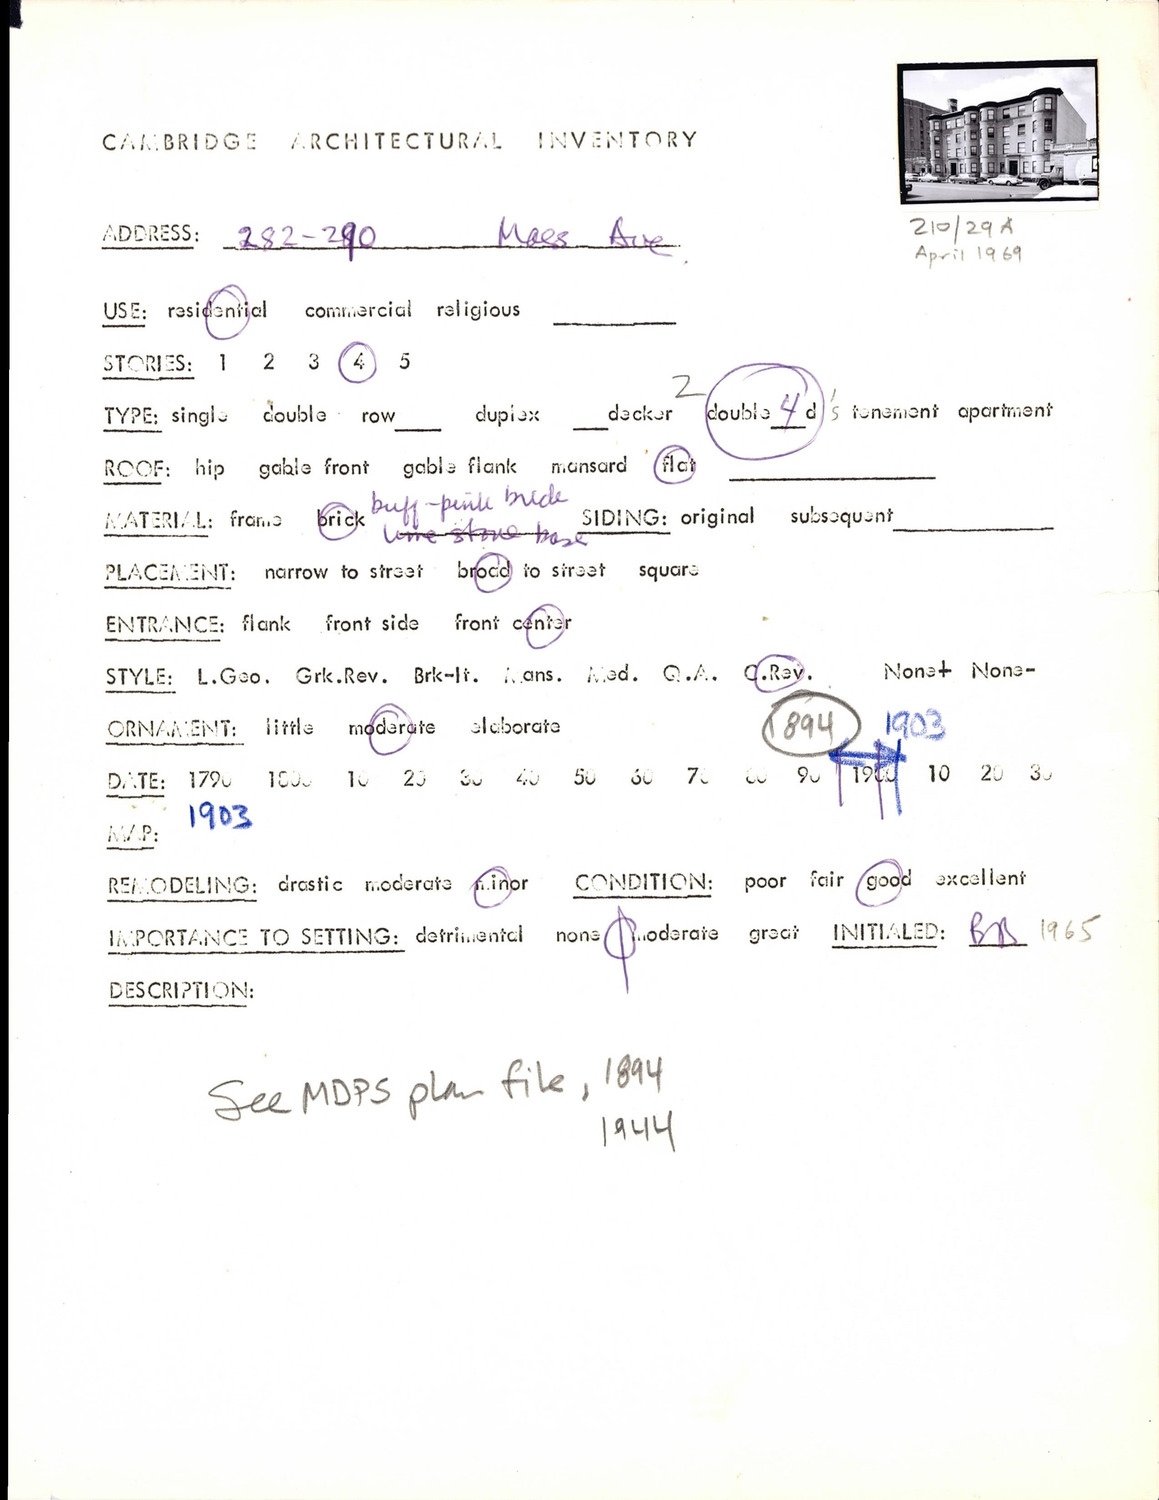 CAMBRIDGE ARCHITECTURAL INVENTORY
210/29A
April 1969
ADDRESS: 282-290 Mass Ave
USE: residential commercial religious
STORIES: 1 2 3 4 5
TYPE: single double row___ duplex ___decker 2 double 4 d's tenement apartment
ROOF: hip gable front gable flank mansard flat
MATERIAL: frame brick buff-pink brick SIDING: original subsequent
lime stone base
PLACEMENT: narrow to street broad to street square
ENTRANCE: flank front side front center
STYLE: L.Geo. Grk.Rev. Brk-It. Mans. Med. Q.A. C.Rev. None+ None-
ORNAMENT: little moderate elaborate 1894 1903
DATE: 1790 1800 10 20 30 40 50 60 70 80 90 1900 10 20 30
1903
MAP:
REMODELING: drastic moderate minor CONDITION: poor fair good excellent
IMPORTANCE TO SETTING: detrimental none moderate great INITIALED: BB 1965
DESCRIPTION:
See MDPS plan file, 1894
1944